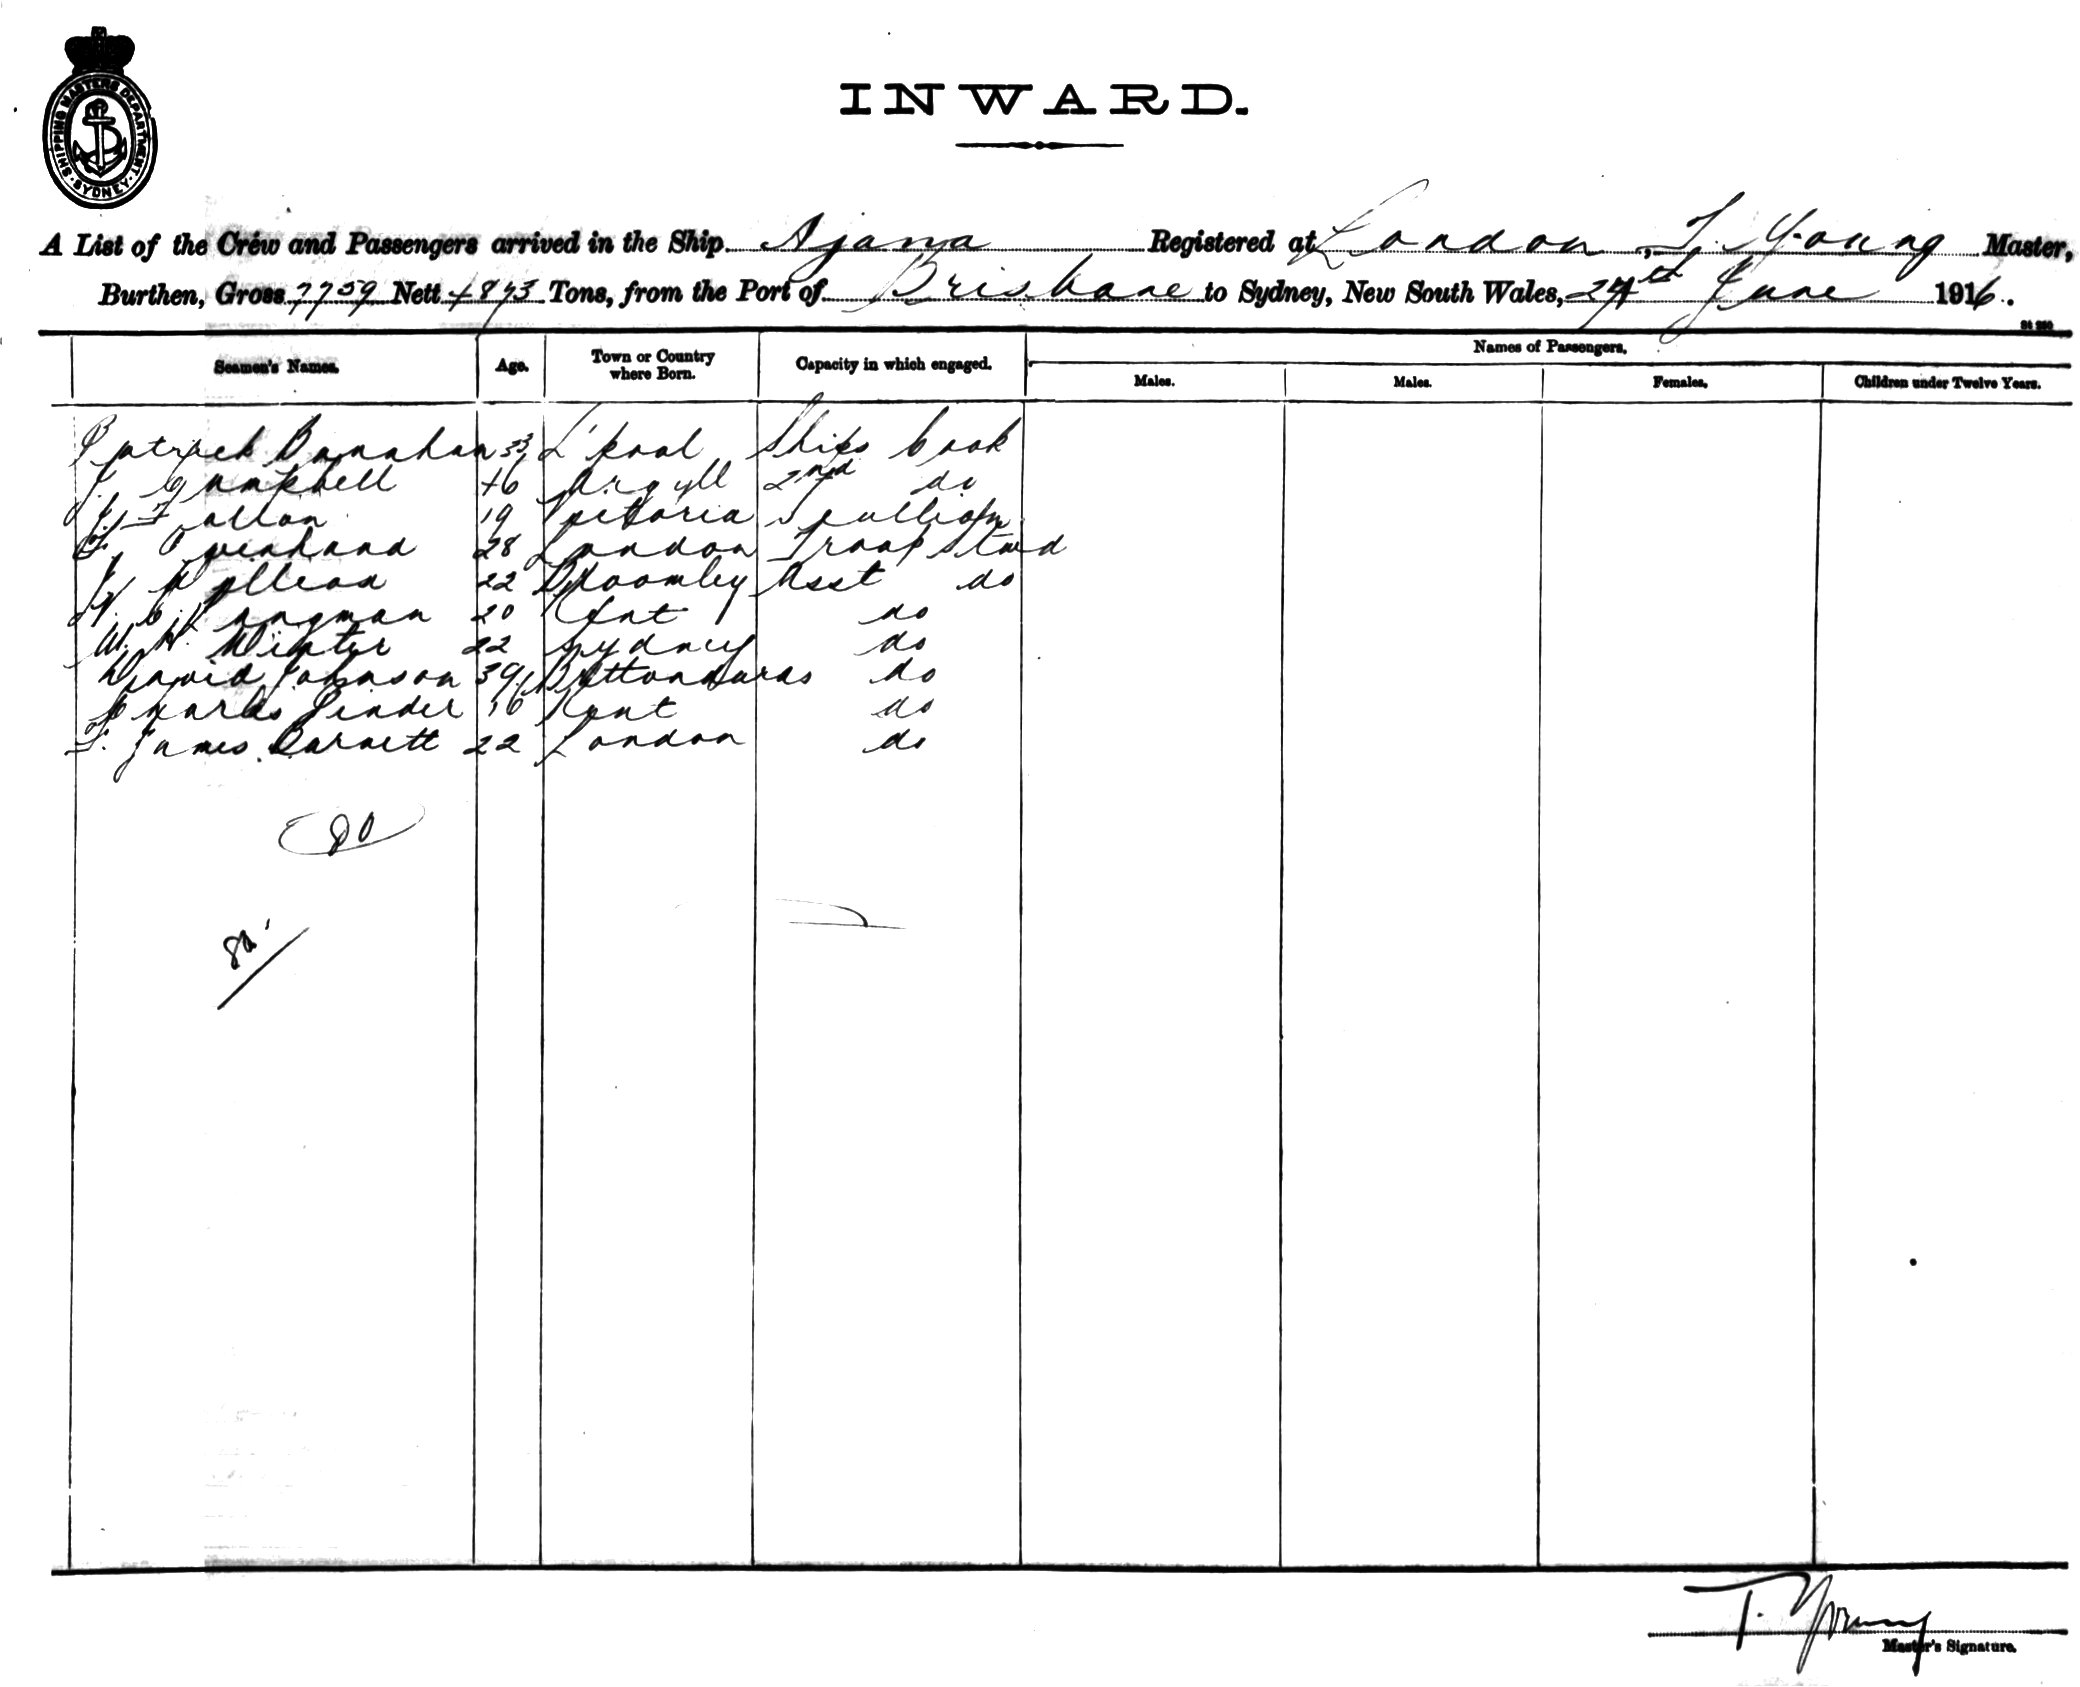 SHIPPING MASTERS DEPARTMENT · SYDNEY ·
INWARD.
A List of the Crew and Passengers arrived in the Ship Ajana Registered at London, T. Young Master,
Burthen, Gross 7759 Nett 4873 Tons, from the Port of Brisbane to Sydney, New South Wales, 24th June 1916.
Names of Passengers.
Seamen's Names. Age. Town or Country where Born. Capacity in which engaged. Males. Males. Females. Children under Twelve Years.
Patrick 33 L'pool Ships Cook
J. Campbell 46 Argyll 2nd do
J. Fallon 19 Pretoria Scullion
28 London Troop Stwd
22 Bromley Asst do
Kingman 20 Kent do
W. H. Winter 22 Sydney do
David Johnson 39 Br Honduras do
Charles Pinder 16 Kent do
F. James Barnett 22 London do
80
80
T. Young
Master's Signature.